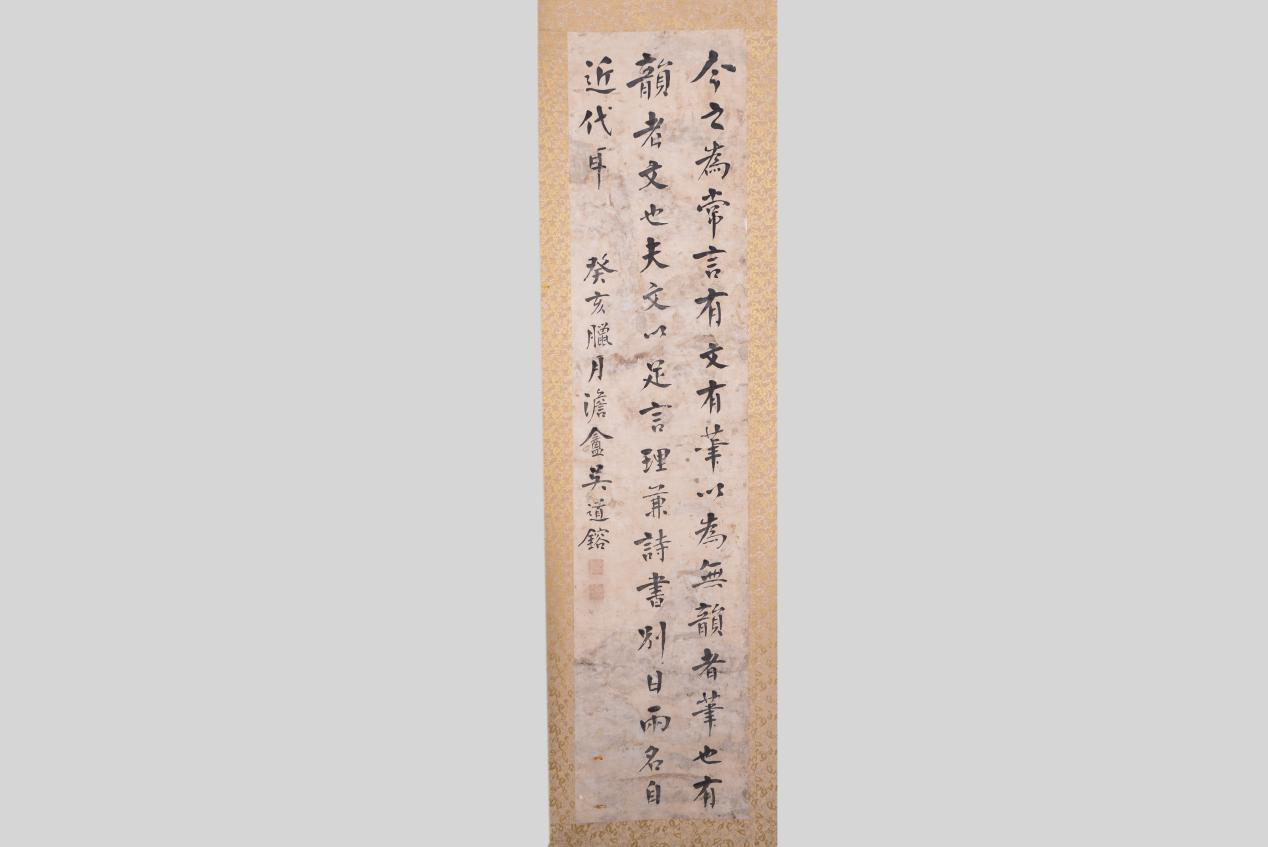 今之為常言有文有筆以為無韻者筆也有
韻者文也夫文以足言理兼詩書別目兩名自
近代耳 癸亥臘月澹盦吳道鎔